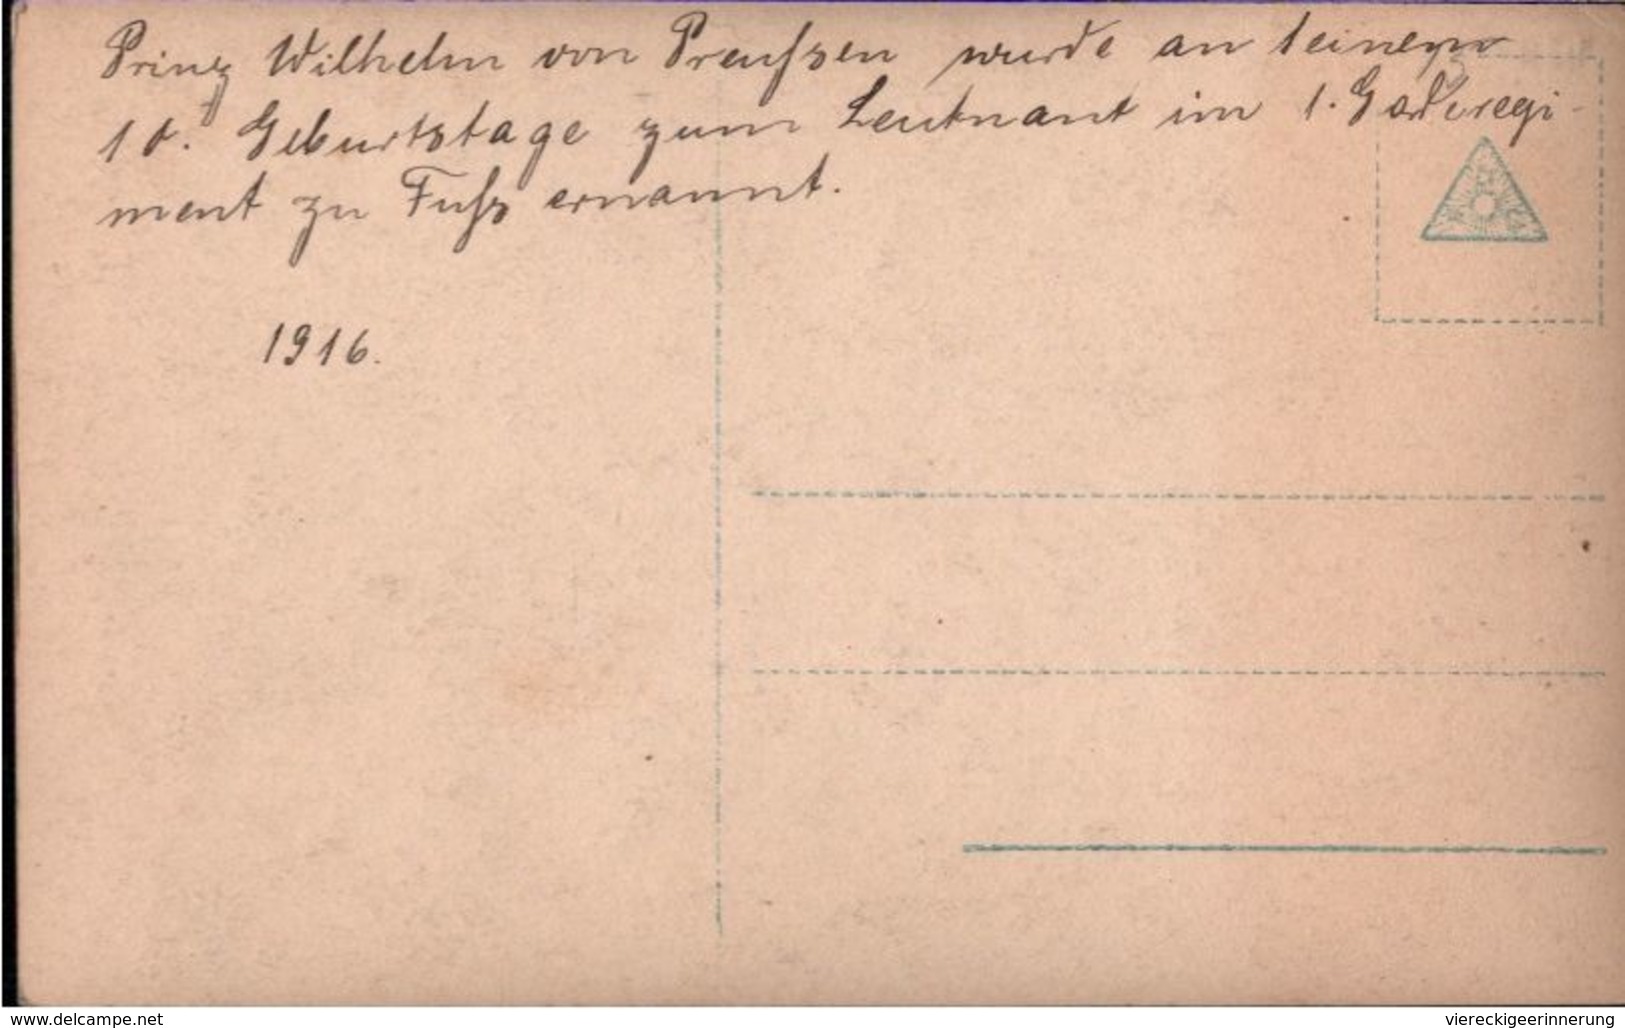 Prinz Wilhelm von Preußzen wurde an seinem
10. Geburtstage zum Leutnant im 1. Garderegi-
ment zu Fußz ernannt.
1916.
www.delcampe.net
viereckigeerinnerung